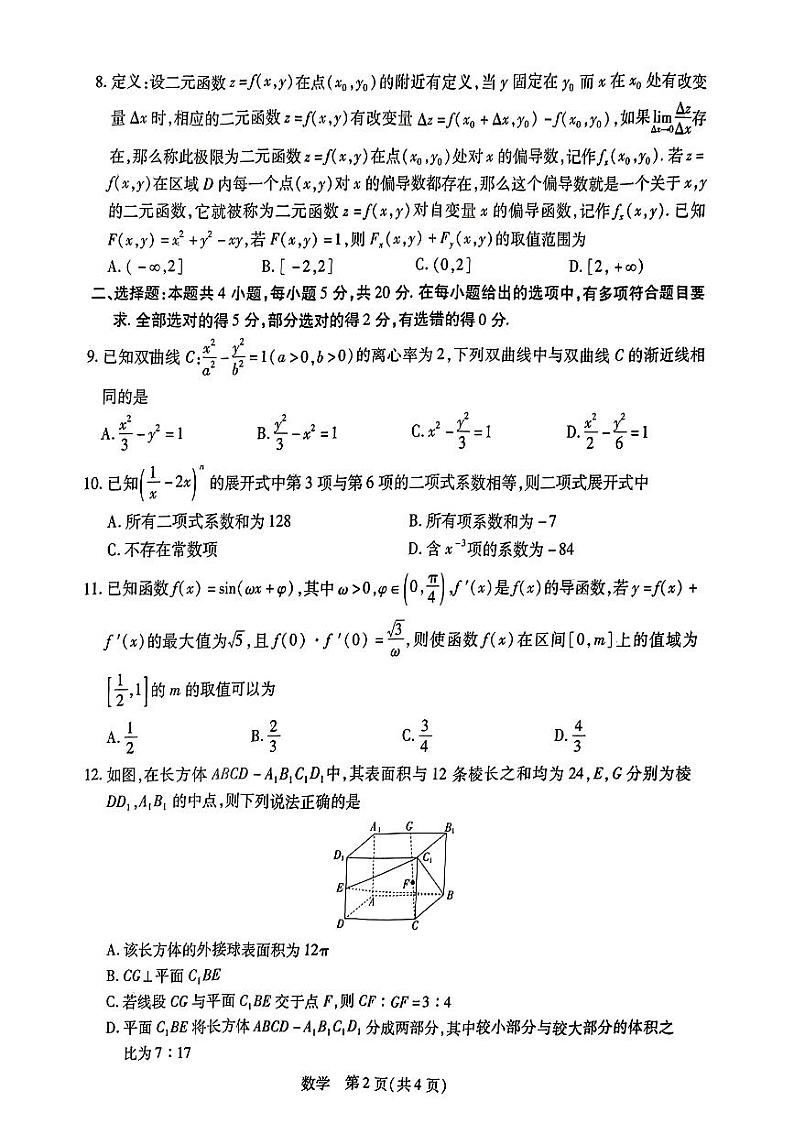 8. 定义:设二元函数 z=f(x,y)在点(x₀,y₀)的附近有定义,当 y 固定在 y₀ 而 x 在 x₀ 处有改变
量 Δx 时,相应的二元函数 z=f(x,y)有改变量 Δz=f(x₀+Δx,y₀)-f(x₀,y₀),如果 lim_{Δx→0} Δz/Δx 存
在,那么称此极限为二元函数 z=f(x,y)在点(x₀,y₀)处对 x 的偏导数,记作 fₓ(x₀,y₀). 若 z=
f(x,y)在区域 D 内每一个点(x,y)对 x 的偏导数都存在,那么这个偏导数就是一个关于 x,y
的二元函数,它就被称为二元函数 z=f(x,y)对自变量 x 的偏导函数,记作 fₓ(x,y). 已知
F(x,y)=x²+y²-xy,若 F(x,y)=1,则 Fₓ(x,y)+F_y(x,y)的取值范围为
A. (-∞,2] B. [-2,2] C. (0,2] D. [2,+∞)
二、选择题:本题共 4 小题,每小题 5 分,共 20 分. 在每小题给出的选项中,有多项符合题目要
求. 全部选对的得 5 分,部分选对的得 2 分,有选错的得 0 分.
9. 已知双曲线 C: x²/a² - y²/b² = 1(a>0,b>0)的离心率为 2,下列双曲线中与双曲线 C 的渐近线相
同的是
A. x²/3 - y² = 1 B. y²/3 - x² = 1 C. x² - y²/3 = 1 D. x²/2 - y²/6 = 1
10. 已知(1/x - 2x)ⁿ 的展开式中第 3 项与第 6 项的二项式系数相等,则二项式展开式中
A. 所有二项式系数和为 128 B. 所有项系数和为 -7
C. 不存在常数项 D. 含 x⁻³项的系数为 -84
11. 已知函数 f(x)=sin(ωx+φ),其中 ω>0,φ∈(0,π/4), f′(x)是 f(x)的导函数,若 y=f(x)+
f′(x)的最大值为√5,且 f(0)·f′(0)=√3/ω,则使函数 f(x)在区间[0,m]上的值域为
[1/2,1]的 m 的取值可以为
A. 1/2 B. 2/3 C. 3/4 D. 4/3
12. 如图,在长方体 ABCD-A₁B₁C₁D₁中,其表面积与 12 条棱长之和均为 24,E,G 分别为棱
DD₁,A₁B₁ 的中点,则下列说法正确的是
A₁ G B₁
D₁ C₁
F
E A B
D C
A. 该长方体的外接球表面积为 12π
B. CG⊥平面 C₁BE
C. 若线段 CG 与平面 C₁BE 交于点 F,则 CF:GF=3:4
D. 平面 C₁BE 将长方体 ABCD-A₁B₁C₁D₁ 分成两部分,其中较小部分与较大部分的体积之
比为 7:17
数学 第 2 页(共 4 页)